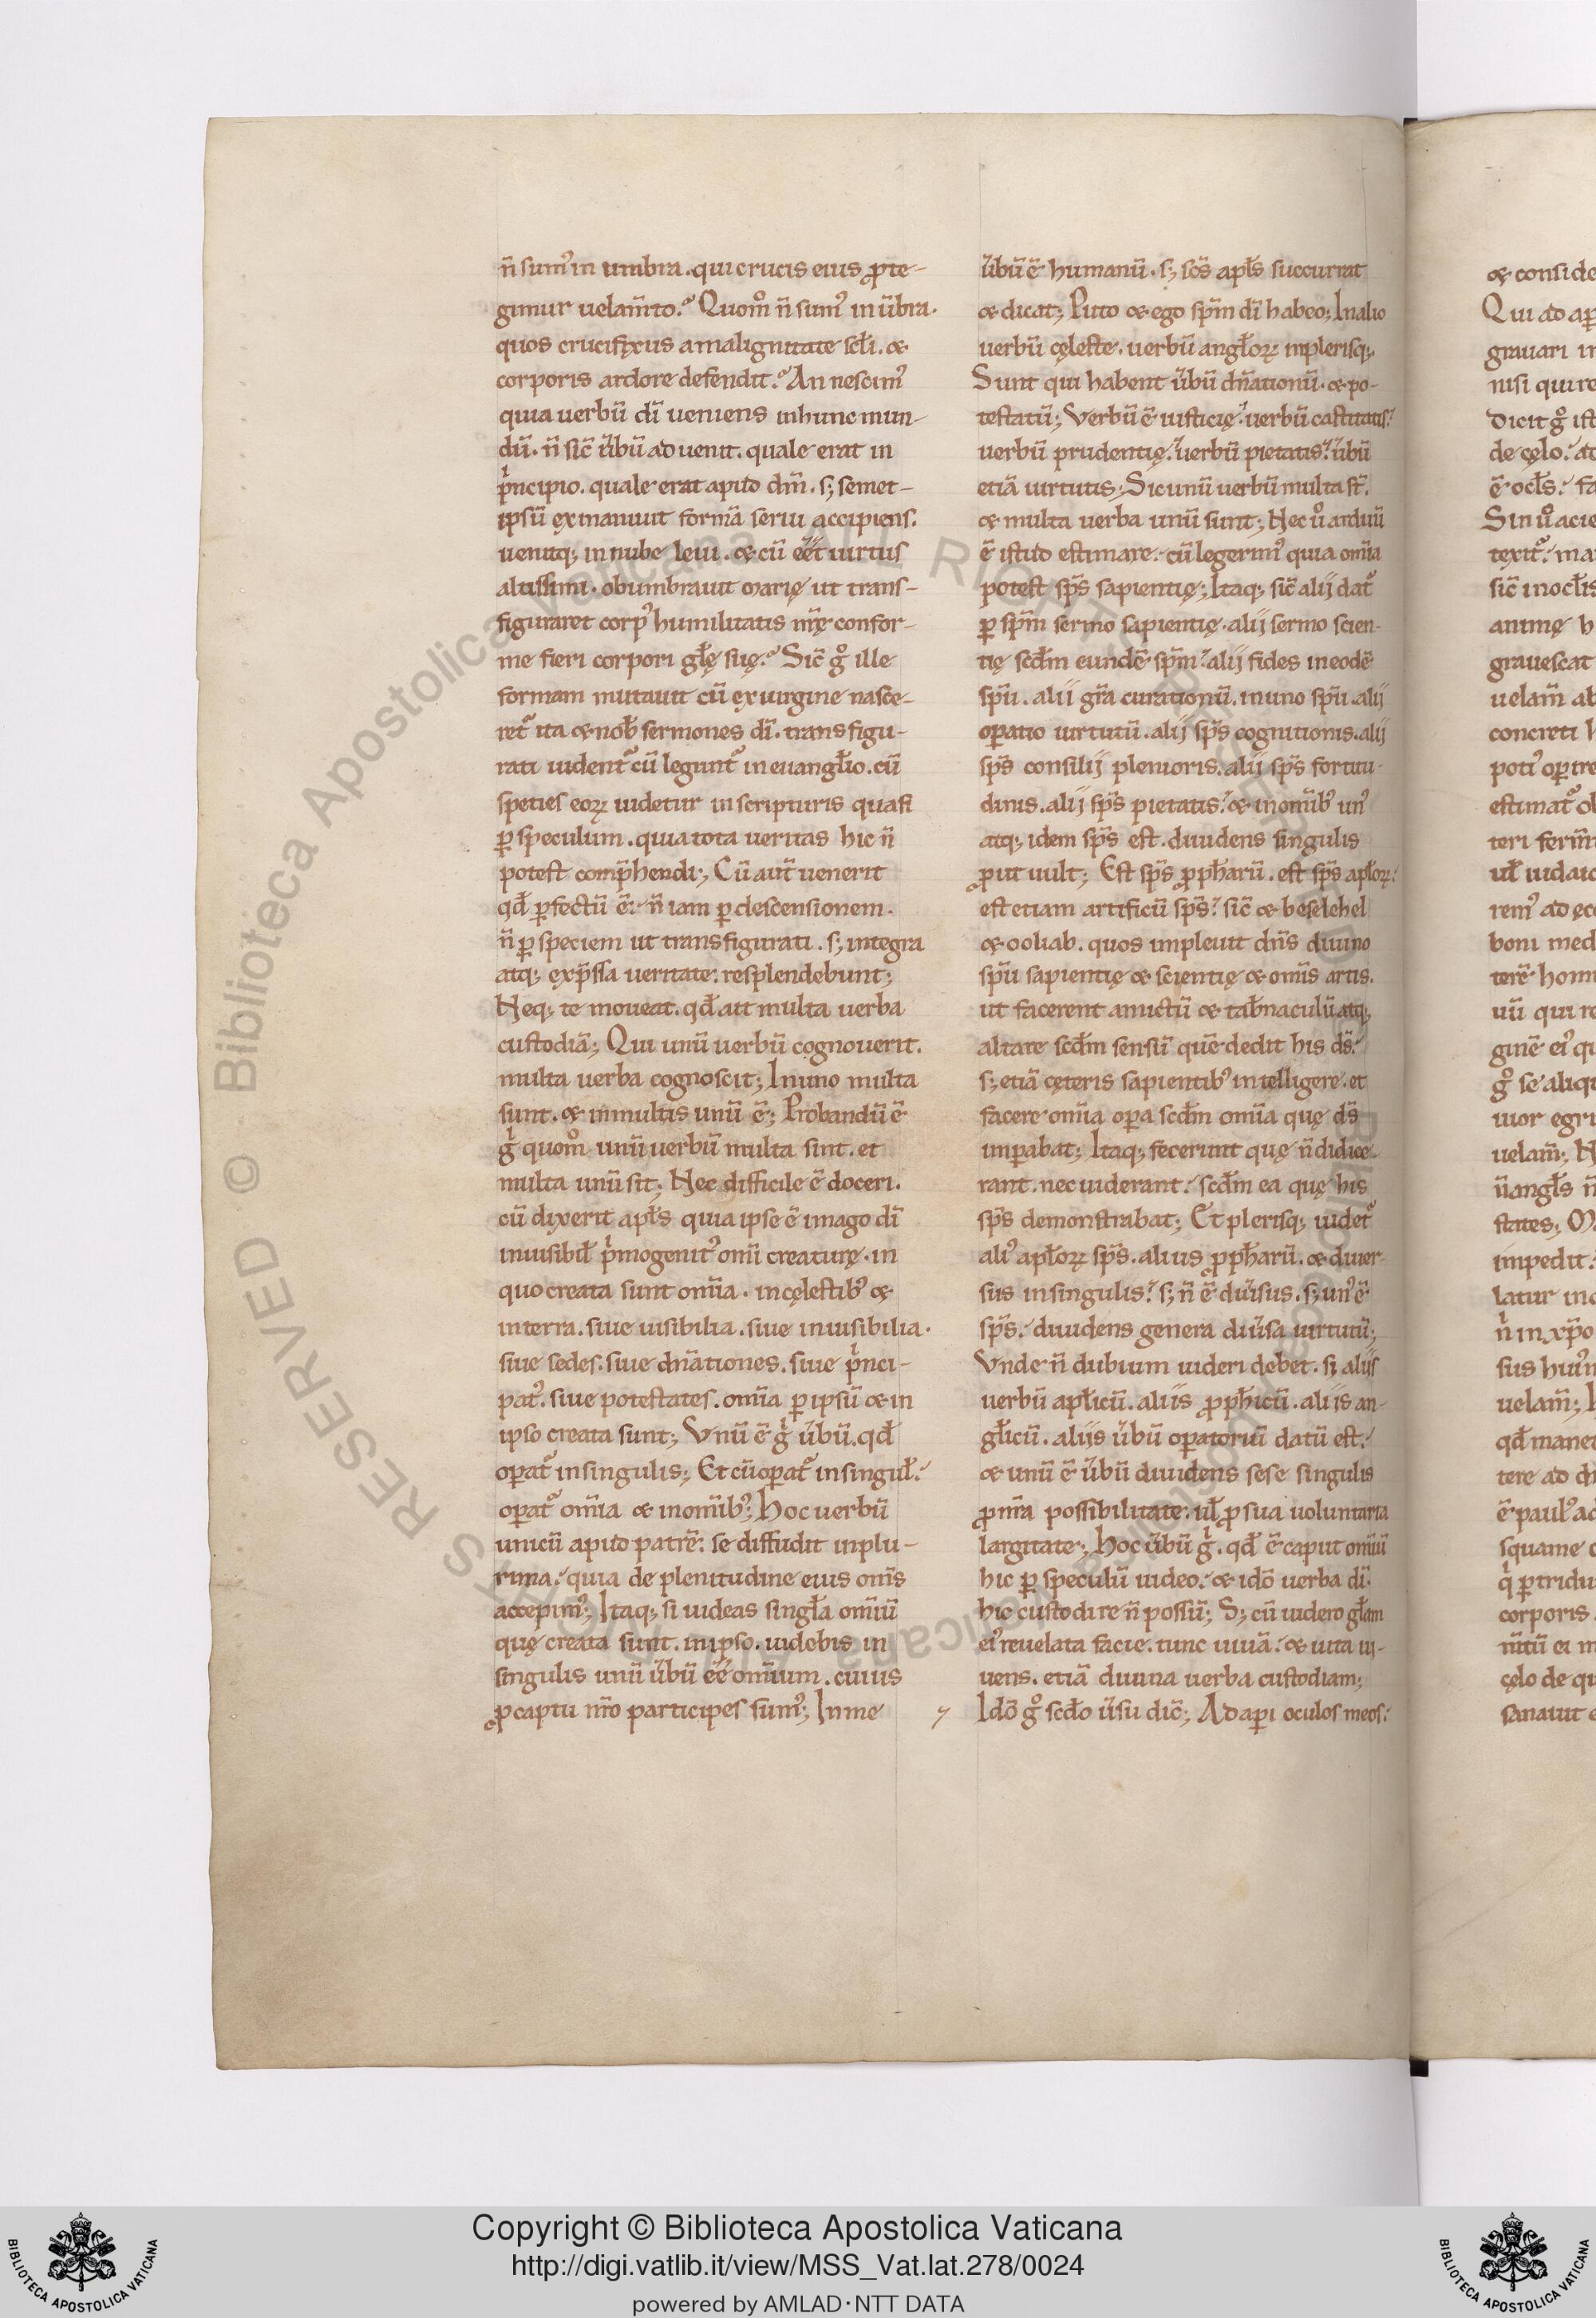 n̄ sum᾽ in umbra. qui crucis eius ꝓte-
gimur uelam̄to.᾽ Quom̊ n̄ sum᾽ in ūbra.
quos crucifixus a malignitate scł̄i. &
corporis ardore defendit.᾽ An nescim᾽
quia uerbū dī ueniens in hunc mun-
dū. n̄ sic̄ ūbū aduenit. quale erat in
pͥncipio. quale erat apud dm̄. s; semet-
ipsū exinaniuit formā serui accipiens.
uenitq; in nube leui. & cū eēt uirtus
altissimi. obumbrauit marię ut trans-
figuraret corp᾽ humilitatis nr̄ę confor-
me fieri corpori glę suę.᾽ Sic̄ gͦ ille
formam mutauit cū ex uirgine nasce-
ret᾽ ita & nob̄ sermones dī. transfigu-
rati uident᾽ cū legunt᾽ in euangłio. cū
speties eoꝝ uidetur in scripturis quasi
ꝑ speculum. quia tota ueritas hic n̄
potest comp̄hendi; Cū aut̄ uenerit
qđ ꝑfectū ē. n̄ iam ꝑ descensionem.
n̄ ꝑ speciem ut transfigurati. s; integra
atq; exp̄ssa ueritate. resplendebunt;
Neq; te moueat. qđ ait multa uerba
custodiā; Qui unū uerbū cognouerit.
multa uerba cognoscit; In uno multa
sunt. & in multis unū ē; Probandū ē
gͥ quom̊ unū uerbū multa sint. et
multa unū sit; Nec difficile ē doceri.
cū dixerit apłs quia ipse ē imago dī
inuisibił pͥmogenit᾽ omī creaturę. in
quo creata sunt om̄ia. in cęlestib᾽ &
in terra. siue uisibilia. siue inuisibilia.
siue sedes. siue dn̄ationes. siue pͥnci-
pat᾽. siue potestates. om̄ia ꝑ ipsū & in
ipso creata sunt; Vnū ē gͥ ūbū. qđ
oꝑat᾽ in singulis; Et cū oꝑat᾽ in singuł.
oꝑat᾽ om̄ia & in om̄ib᾽; Hoc uerbū
unicū apud patrē. se diffudit in plu-
rima. quia de plenitudine eius om̄s
accepim᾽; Itaq; si uideas singła om̄iū
quę creata sunt. in ipso. uidebis in
singulis unū ūbū eē om̄ium. cuius
ꝓ captu nr̄o participes sum᾽; In me
ūbū ē humanū. s; sc̄s apłs succurrat
& dicat; Puto & ego sp̄m dī habeo; In alio
uerbū cęleste. uerbū angłoꝝ in plerisq;
Sunt qui habent ūbū dn̄ationū. & po-
testatū; Verbū ē iusticię. uerbū castitatis.
uerbū prudentię. uerbū pietatis. ūbū
etiā uirtutis; Sic unū uerbū multa st̄.
& multa uerba unū sunt; Nec u̾ arduū
ē istud estimare. cū legerim᾽ quia om̄ia
potest sp̄s sapientię; Itaq; sic̄ alij dat᾽
ꝑ sp̄m sermo sapientię. alij sermo scien-
tię scđm eundē sp̄m. alij fides in eodē
sp̄u. alii gr̄a curationū. in uno sp̄u. alij
oꝑatio uirtutū. alij sp̄s cognitionis. alij
sp̄s consilij plenioris. alij sp̄s fortitu-
dinis. alij sp̄s pietatis. & in om̄ib᾽ un᾽
atq; idem sp̄s est. diuidens singulis
ꝓut uult; Est sp̄s ꝓph̄arū. est sp̄s apłoꝝ.
est etiam artificū sp̄s. sic̄ & beselehel
& ooliab. quos impleuit dn̄s diuino
sp̄u sapientię & scientię & om̄is artis.
ut facerent amictū & tab̄naculū atq;
altare scđm sensū quē dedit his ds̄.
s; etiā cęteris sapientib᾽ intelligere. et
facere om̄ia oꝑa scđm om̄ia quę ds̄
imꝑabat; Itaq; fecerunt quę n̄ didice-
rant. nec uiderant. scđm ea quę his
sp̄s demonstrabat; Et plerisq; uidet᾽
ali᾽ apłoꝝ sp̄s. alius ꝓph̄arū. & diuer-
sus in singulis. s; n̄ ē diūsus. s; un᾽ ē
sp̄s. diuidens genera diūsa uirtutū;
Vnde n̄ dubium uideri debet. si alijs
uerbū apłicū. aliis ꝓph̄icū. aliis an-
głicū. aliis ūbū oꝑatoriū datū est.
& unū ē ūbū diuidens sese singulis
ꝓ nr̄a possibilitate. uł ꝓ sua uoluntaria
largitate; Hoc ūbū gͥ. qđ ē caput om̄iū
hic ꝑ speculū uideo. & idō uerba dī.
hic custodire n̄ possū; S; cū uidero głam
ei᾽ reuelata facie. tunc uiuā. & uita ui-
uens. etiā diuina uerba custodiam;
Idō gͦ scđo ūsu dic̄; Adaꝑi oculos meos.
Copyright © Biblioteca Apostolica Vaticana
http://digi.vatlib.it/view/MSS_Vat.lat.278/0024
powered by AMLAD·NTT DATA